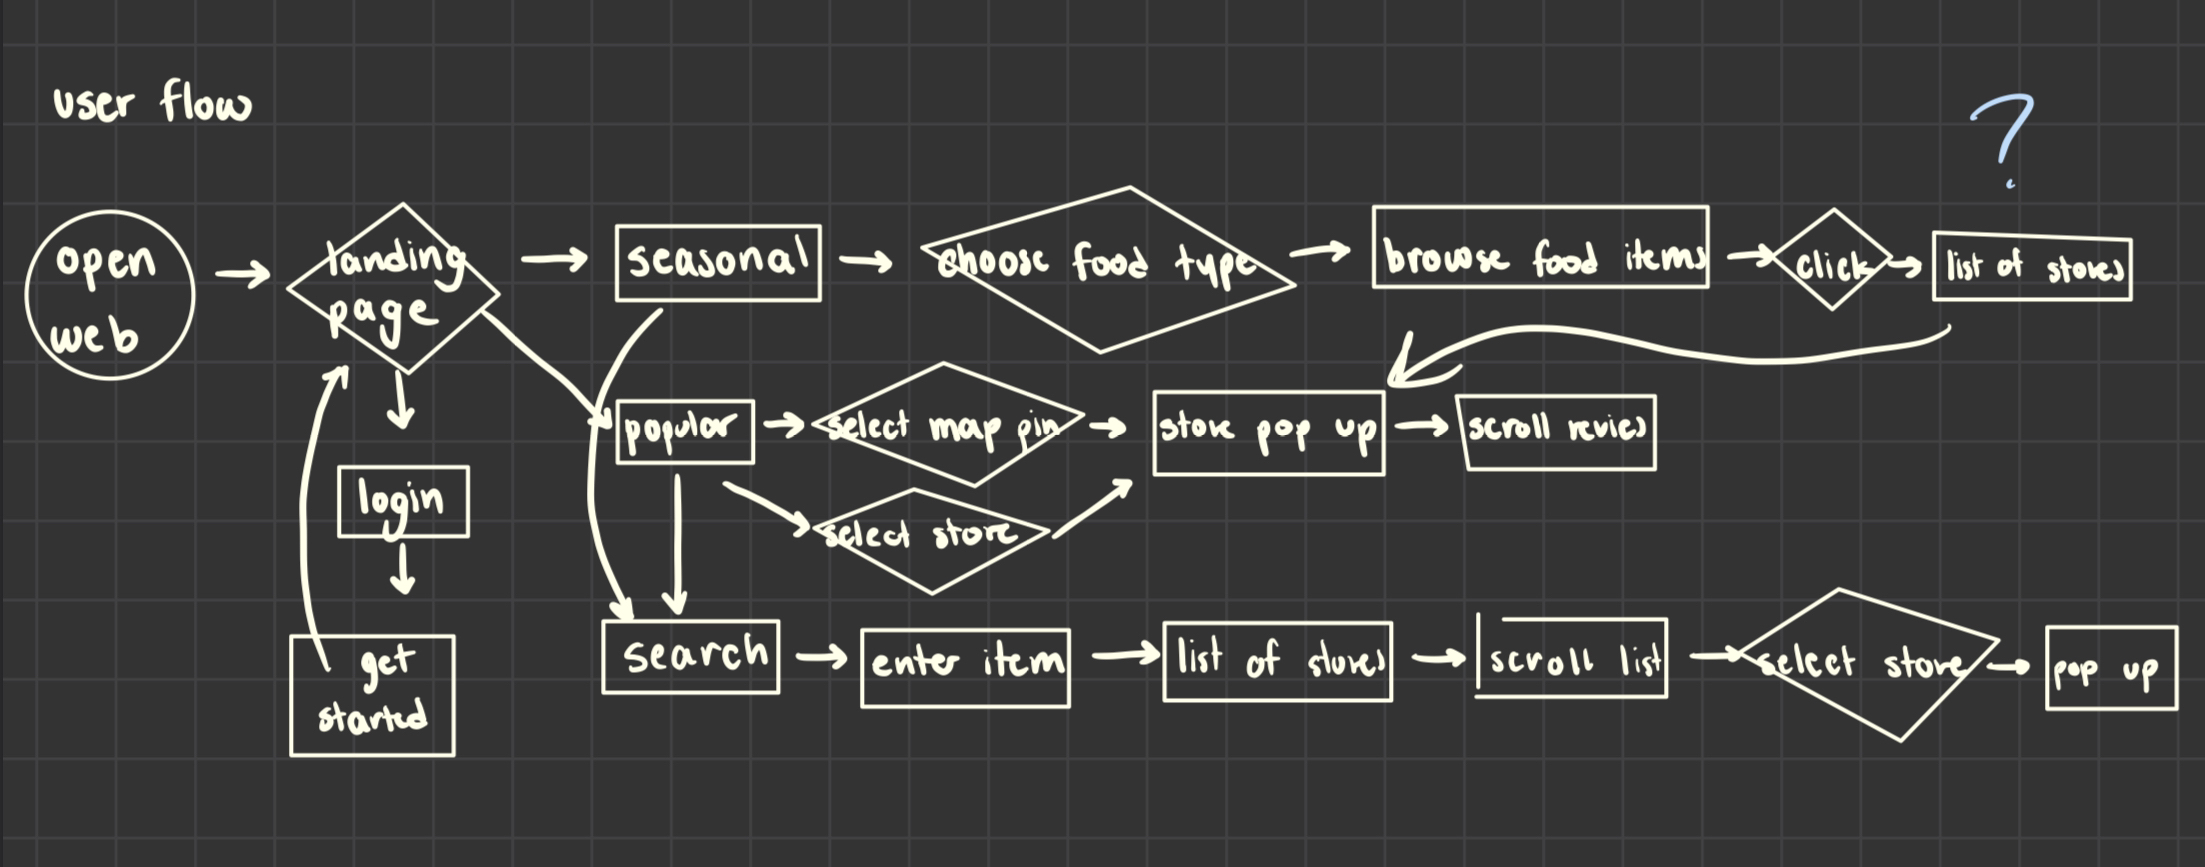 user flow
?
open
web
landing
page
seasonal
choose food type
browse food items
click
list of stores
popular
select map pin
store pop up
scroll revies
login
select store
get
started
search
enter item
list of stores
scroll list
select store
pop up